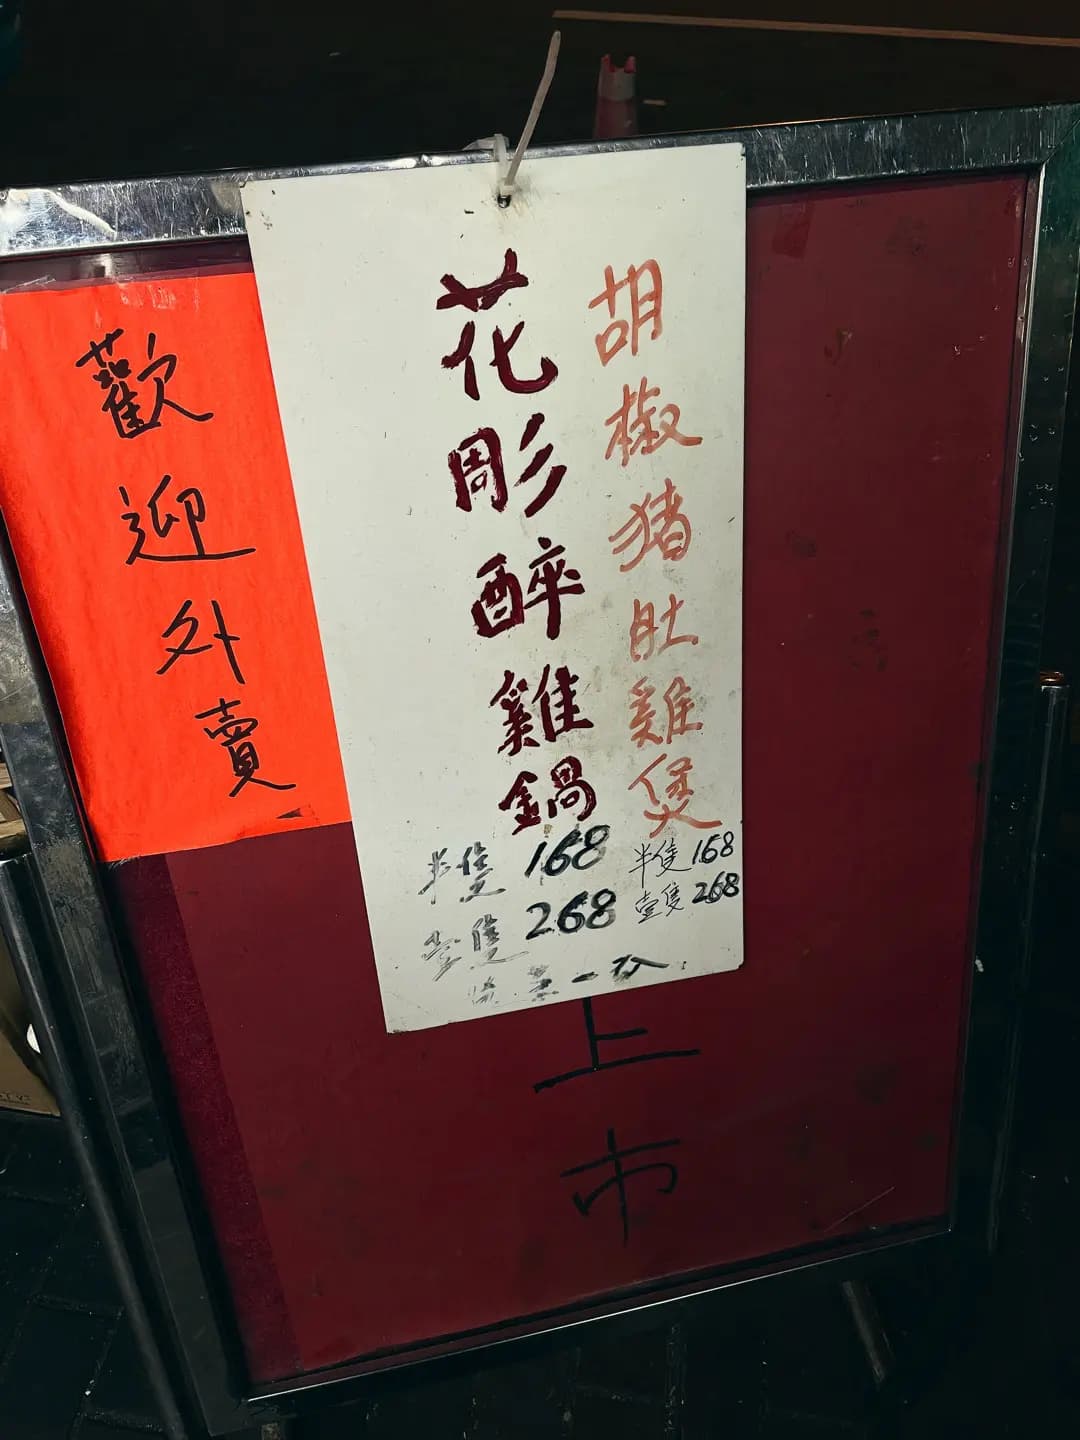 胡椒猪肚雞煲
半隻 168
壹隻 268
花彫醉雞鍋
半隻 168
壹隻 268
上市
歡迎外賣